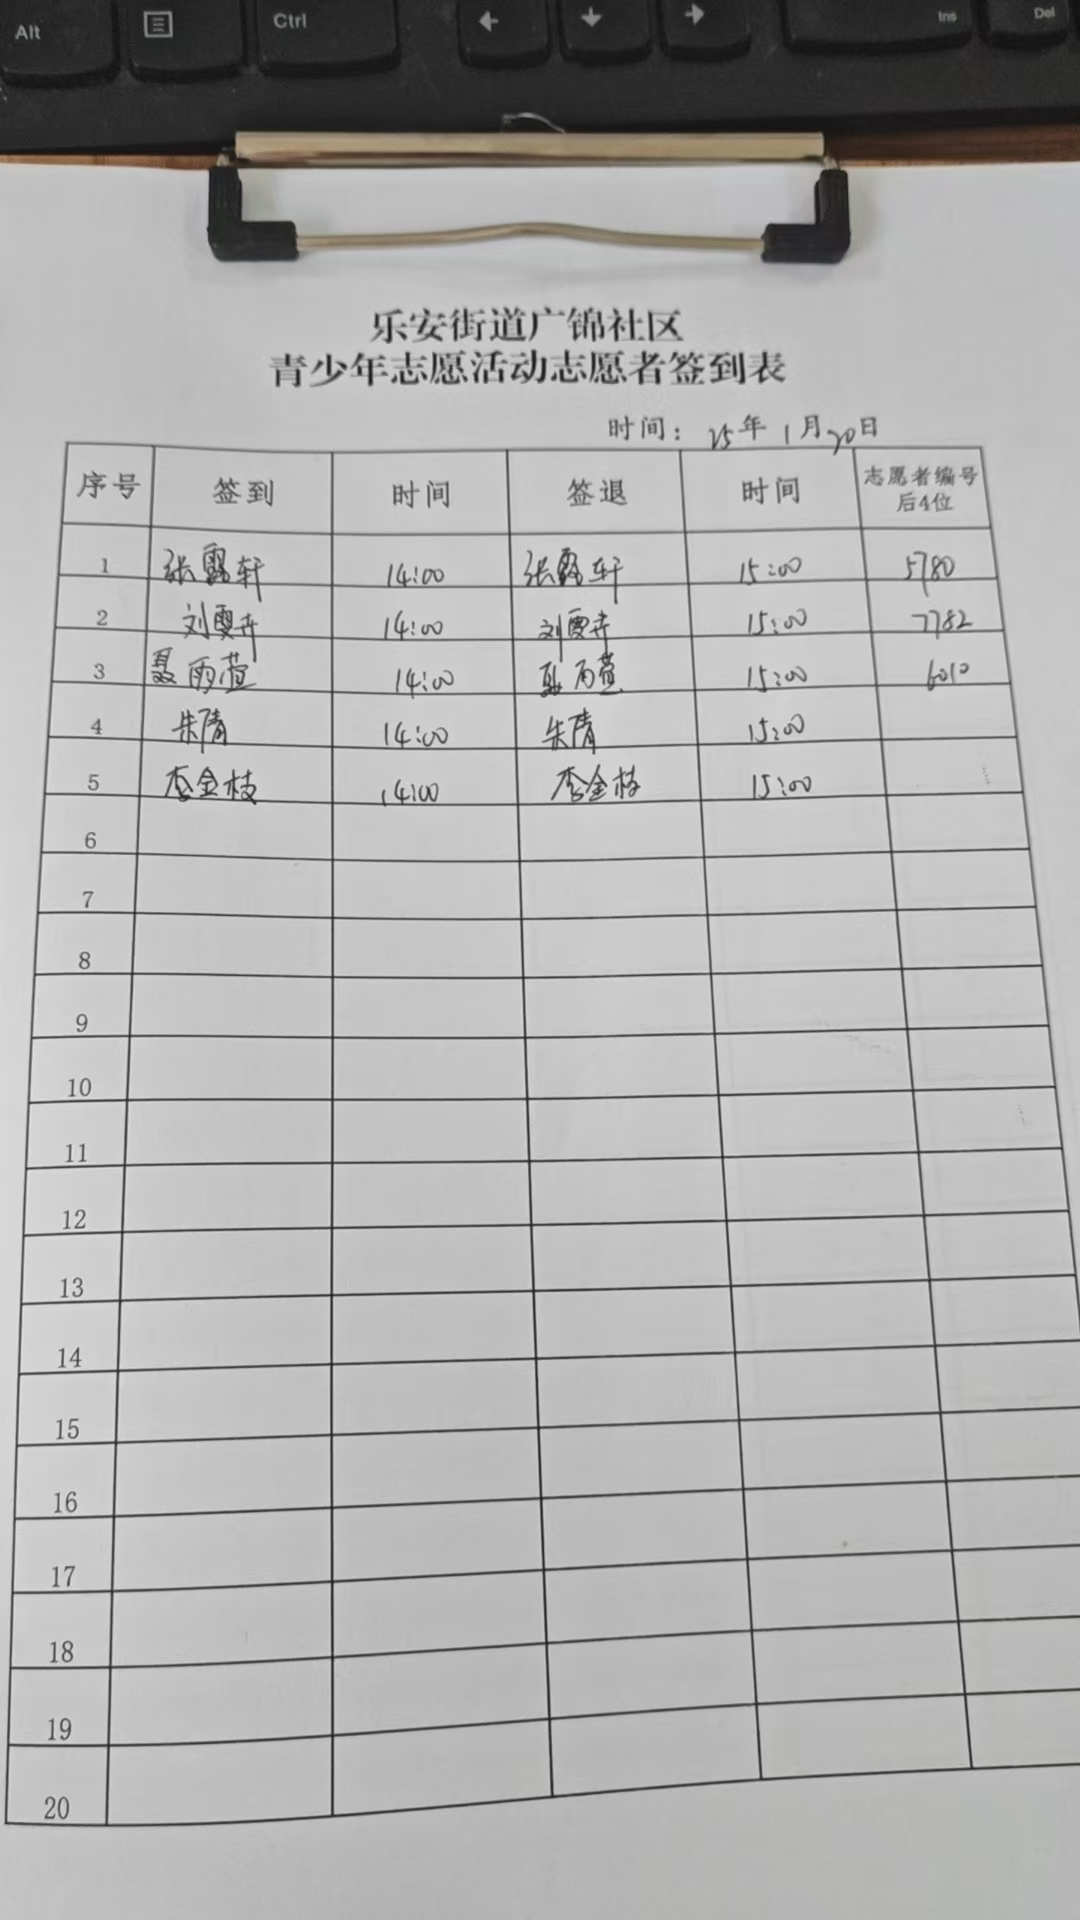 Alt Ctrl Ins Del
乐安街道广锦社区
青少年志愿活动志愿者签到表
时间: 25年 1月20日
序号 签到 时间 签退 时间 志愿者编号后4位
1 张露轩 14:00 张露轩 15:00 5780
2 刘雯卉 14:00 刘雯卉 15:00 7782
3 聂雨萱 14:00 聂雨萱 15:00 6010
4 朱倩 14:00 朱倩 15:00
5 李金枝 14:00 李金枝 15:00
6
7
8
9
10
11
12
13
14
15
16
17
18
19
20